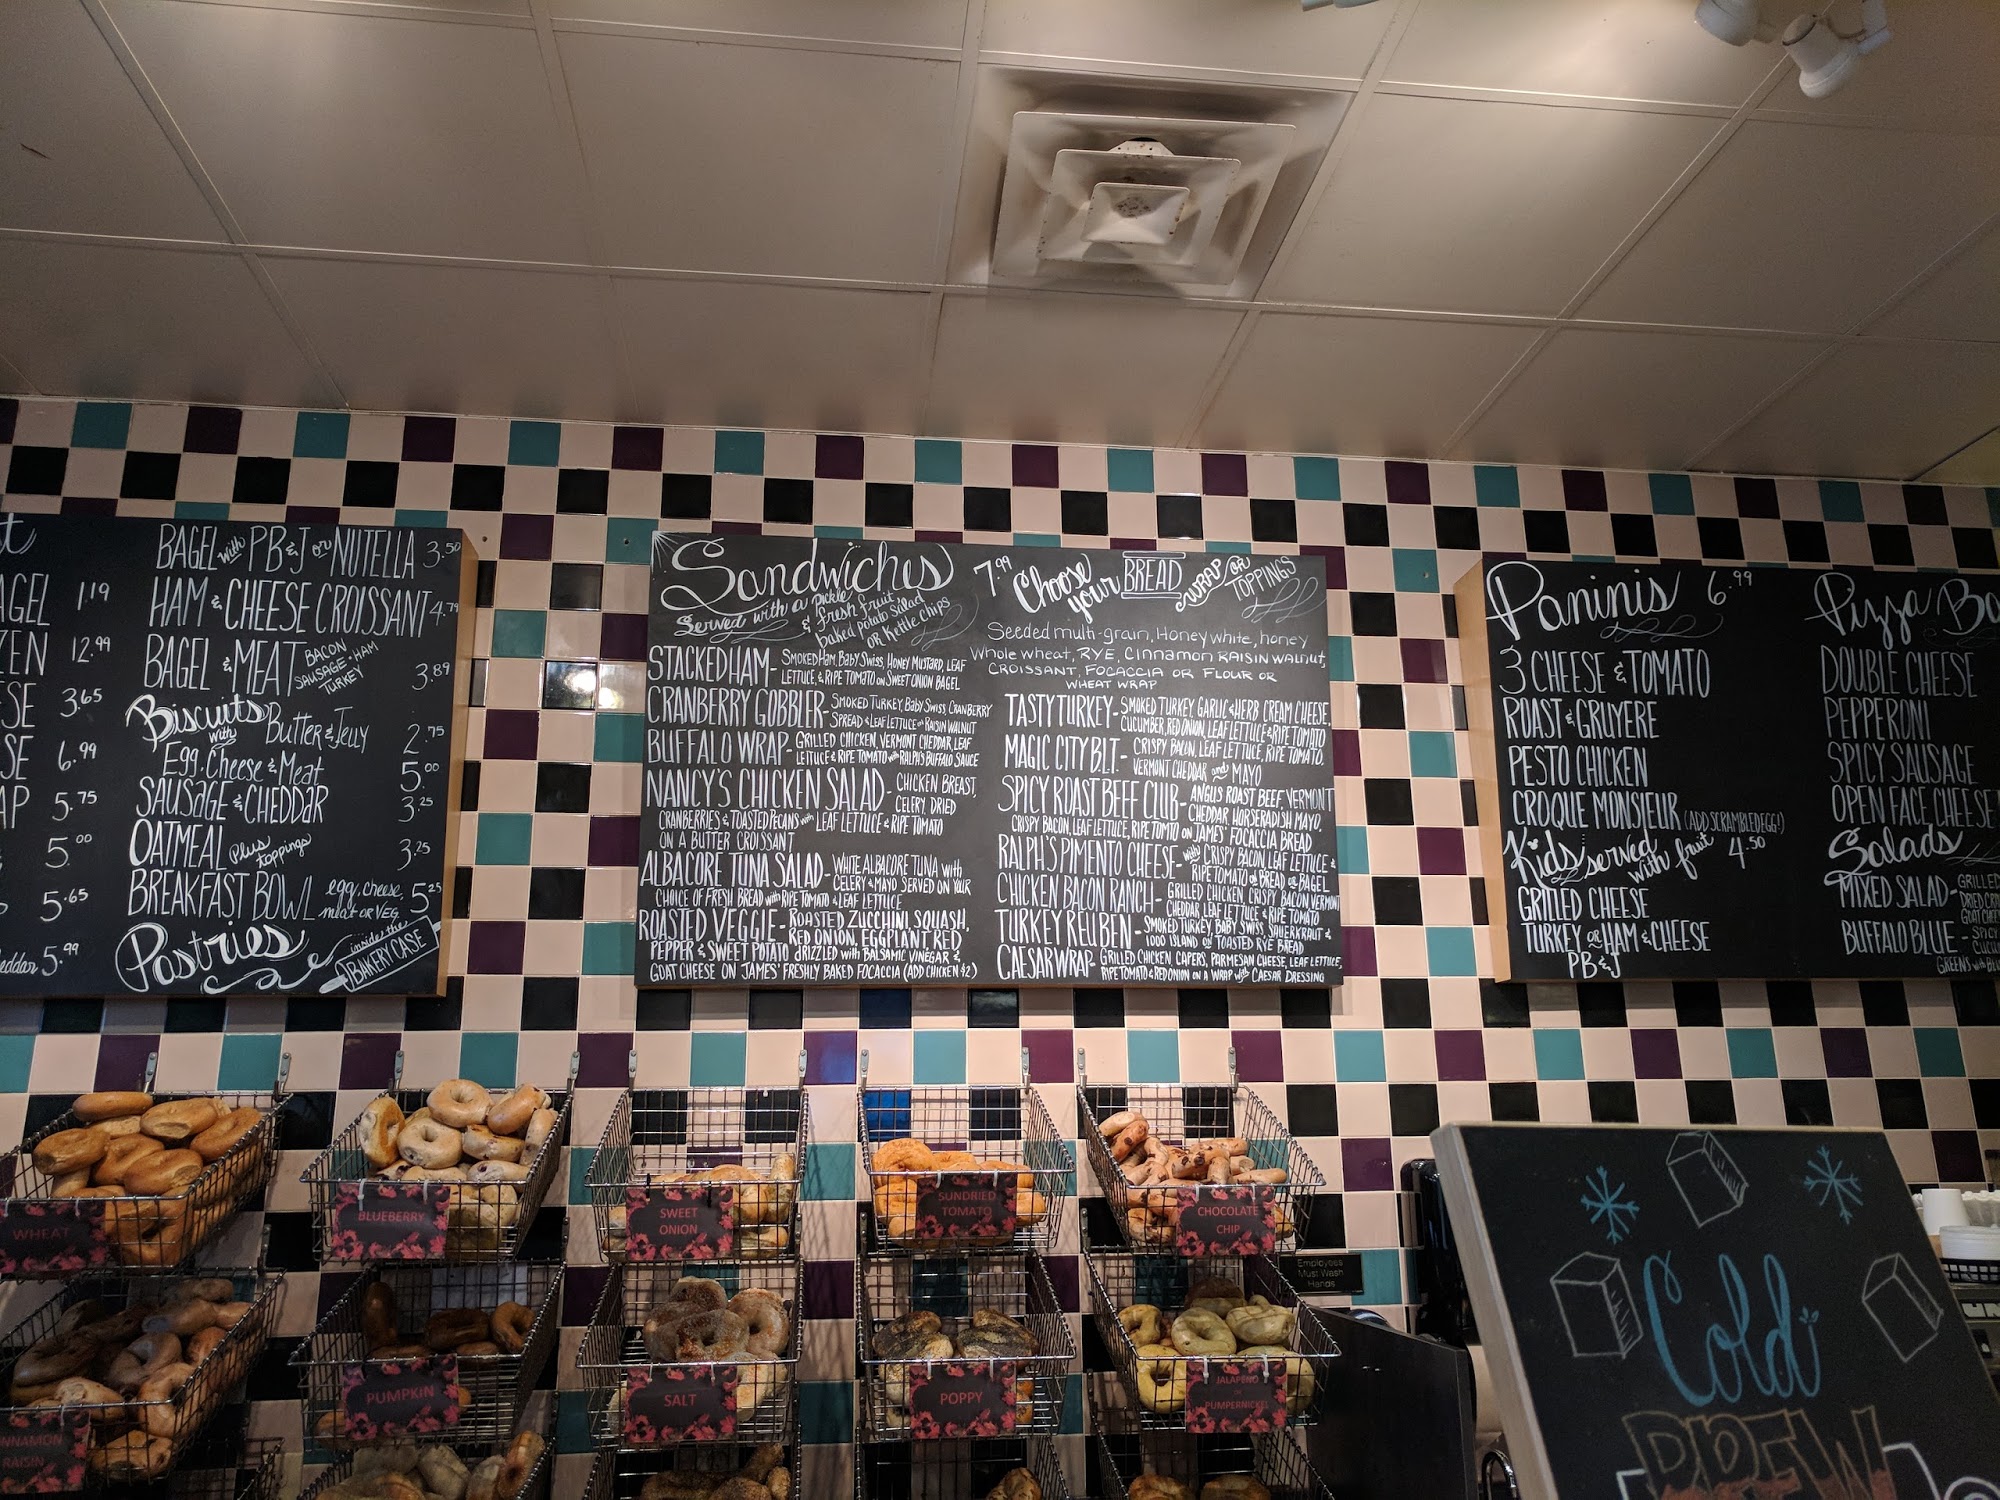 AGEL 1.19
ZEN 12.99
SE 3.65
SE 6.99
AP 5.75
5.00
5.65
eddar 5.99
BAGEL with PB & J or NUTELLA 3.50
HAM & CHEESE CROISSANT 4.79
BAGEL & MEAT BACON
SAUSAGE · HAM
TURKEY 3.89
Biscuits
with Butter & Jelly 2.75
Egg, Cheese & Meat 5.00
SAUSAGE & CHEDDAR 3.25
OATMEAL Plus
toppings 3.25
BREAKFAST BOWL egg, cheese,
meat or veg. 5.25
Pastries inside the
BAKERY CASE
Sandwiches 7.99
Served with a pickle
& fresh fruit
baked potato salad
OR Kettle Chips
STACKED HAM - SMOKED HAM, BABY SWISS, HONEY MUSTARD, LEAF
LETTUCE, & RIPE TOMATO ON SWEET ONION BAGEL
CRANBERRY GOBBLER - SMOKED TURKEY, BABY SWISS, CRANBERRY
SPREAD & LEAF LETTUCE on RAISIN WALNUT
BUFFALO WRAP - GRILLED CHICKEN, VERMONT CHEDDAR, LEAF
LETTUCE & RIPE TOMATO with RALPH'S BUFFALO SAUCE
NANCY'S CHICKEN SALAD - CHICKEN BREAST,
CELERY, DRIED
CRANBERRIES & TOASTED PECANS with LEAF LETTUCE & RIPE TOMATO
ON A BUTTER CROISSANT
ALBACORE TUNA SALAD - WHITE ALBACORE TUNA with
CELERY & MAYO SERVED ON YOUR
CHOICE OF FRESH BREAD with RIPE TOMATO & LEAF LETTUCE
ROASTED VEGGIE - ROASTED ZUCCHINI, SQUASH,
RED ONION, EGGPLANT, RED
PEPPER & SWEET POTATO DRIZZLED with BALSAMIC VINEGAR &
GOAT CHEESE ON JAMES' FRESHLY BAKED FOCACCIA (ADD CHICKEN $2)
Choose
your BREAD WRAP OR
TOPPINGS
Seeded multi-grain, Honey white, honey
Whole wheat, RYE, Cinnamon RAISIN WALNUT,
CROISSANT, FOCACCIA OR FLOUR OR
WHEAT WRAP
TASTY TURKEY - SMOKED TURKEY, GARLIC & HERB CREAM CHEESE,
CUCUMBER, RED ONION, LEAF LETTUCE & RIPE TOMATO
MAGIC CITY BLT. - CRISPY BACON, LEAF LETTUCE, RIPE TOMATO,
VERMONT CHEDDAR and MAYO
SPICY ROAST BEEF CLUB - ANGUS ROAST BEEF, VERMONT
CHEDDAR, HORSERADISH MAYO,
CRISPY BACON, LEAF LETTUCE, RIPE TOMTO ON JAMES' FOCACCIA BREAD
RALPH'S PIMENTO CHEESE - with CRISPY BACON, LEAF LETTUCE &
RIPE TOMATO on BREAD or BAGEL
CHICKEN BACON RANCH - GRILLED CHICKEN, CRISPY BACON VERMONT
CHEDDAR, LEAF LETTUCE & RIPE TOMATO
TURKEY REUBEN - SMOKED TURKEY, BABY SWISS, SAUERKRAUT &
1000 ISLAND on TOASTED RYE BREAD
CAESAR WRAP - GRILLED CHICKEN, CAPERS, PARMESAN CHEESE, LEAF LETTUCE,
RIPE TOMATO & RED ONION ON A WRAP with CAESAR DRESSING
Paninis 6.99
3 CHEESE & TOMATO
ROAST & GRUYERE
PESTO CHICKEN
CROQUE MONSIEUR (ADD SCRAMBLED EGG!)
Kids served
with fruit 4.50
GRILLED CHEESE
TURKEY or HAM & CHEESE
PB & J
Pizza Ba
DOUBLE CHEESE
PEPPERONI
SPICY SAUSAGE
OPEN FACE CHEESE
Salads
MIXED SALAD - GRILLED
DRIED
GOAT CHEE
BUFFALO BLUE - SPICY
GREENS with
WHEAT
BLUEBERRY
SWEET
ONION
SUNDRIED
TOMATO
CHOCOLATE
CHIP
Employees
Must Wash
Hands
NNAMON
RAISIN
PUMPKIN
SALT
POPPY
JALAPENO
or
PUMPERNICKEL
Cold
BREW